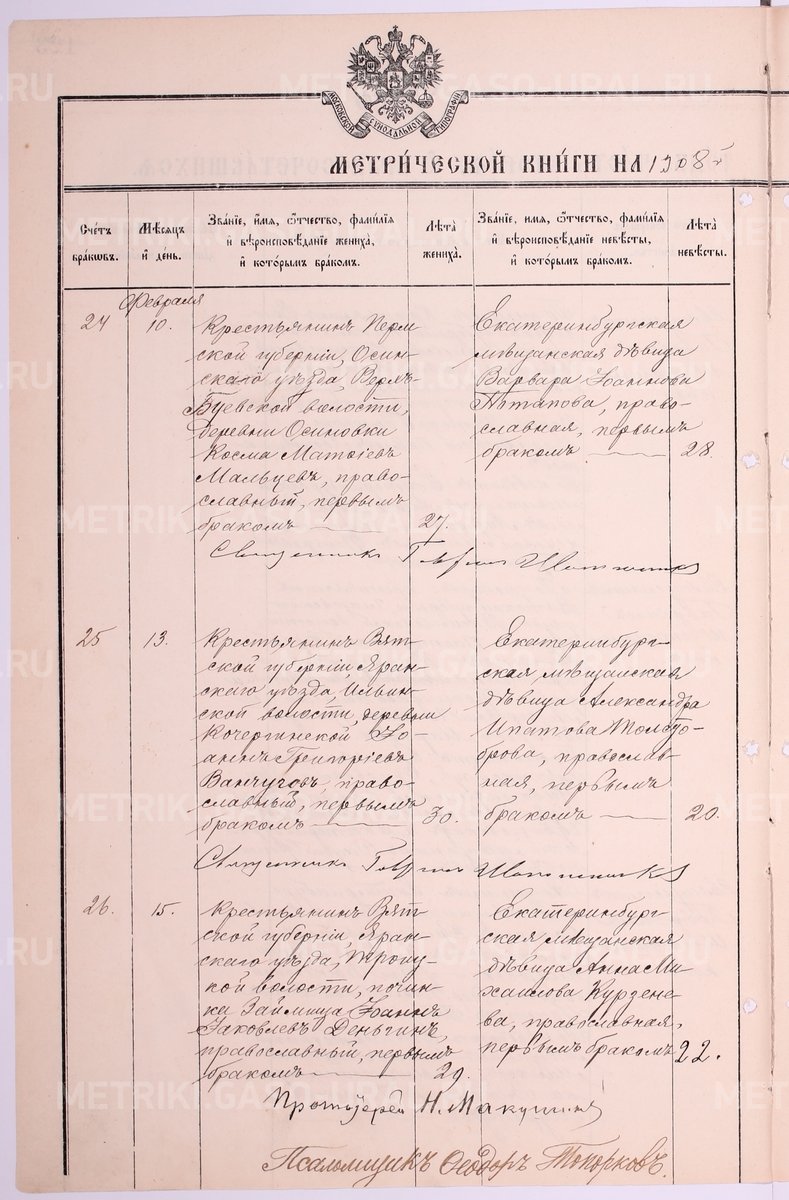 МОСКОВСКОЙ СѴНОДАЛЬНОЙ ТИПОГРАФІИ
МЕТРИ́ЧЕСКОЙ КНИ́ГИ НА 1908 г.
Сче́тъ бра́кѡвъ.
Мѣ́сѧцъ и҆ де́нь.
Зва́нїе, и҆́мѧ, ѻ҆́тчество, фами́лїѧ и҆ вѣроисповѣ́данїе жениха̀, и҆ кото́рымъ бра́комъ.
Лѣ́та жениха̀.
Зва́нїе, и҆́мѧ, ѻ҆́тчество, фами́лїѧ и҆ вѣроисповѣ́данїе невѣ́сты, и҆ кото́рымъ бра́комъ.
Лѣ́та невѣ́сты.
Февраля
24
10.
Крестьянинъ Перм
ской губерніи, Осин-
скаго уѣзда, Верхъ-
Буевской волости,
деревни Осиновки
Косма Матѳіевъ
Мальцевъ, право-
славный, первымъ
бракомъ
27.
Екатеринбургская
мѣщанская дѣвица
Варвара Іоаннова
Потапова, право-
славная, первымъ
бракомъ
28.
Священникъ Гавріилъ
25
13.
Крестьянинъ Вят-
ской губерніи, Яран-
скаго уѣзда, Ильин-
ской волости, деревни
Кочергинской Іо-
аннъ Григоріевъ
Ванчуговъ, право-
славный, первымъ
бракомъ
30.
Екатеринбург-
ская мѣщанская
дѣвица Александра
Ипатова Толсто-
брова, православ-
ная, первымъ
бракомъ
20.
Священникъ Гавріилъ
26.
15.
Крестьянинъ Вят-
ской губерніи, Яран-
скаго уѣзда,
кой волости, почин-
ка Займища Іоаннъ
Іаковлевъ Деньгинъ,
православный, первымъ
бракомъ
29.
Екатеринбург-
ская мѣщанская
дѣвица Анна Ми-
хаилова Курзене-
ва, православная,
первымъ бракомъ
22.
Протоіерей Н. Макушинъ
Псаломщикъ Ѳеодоръ Топорковъ.